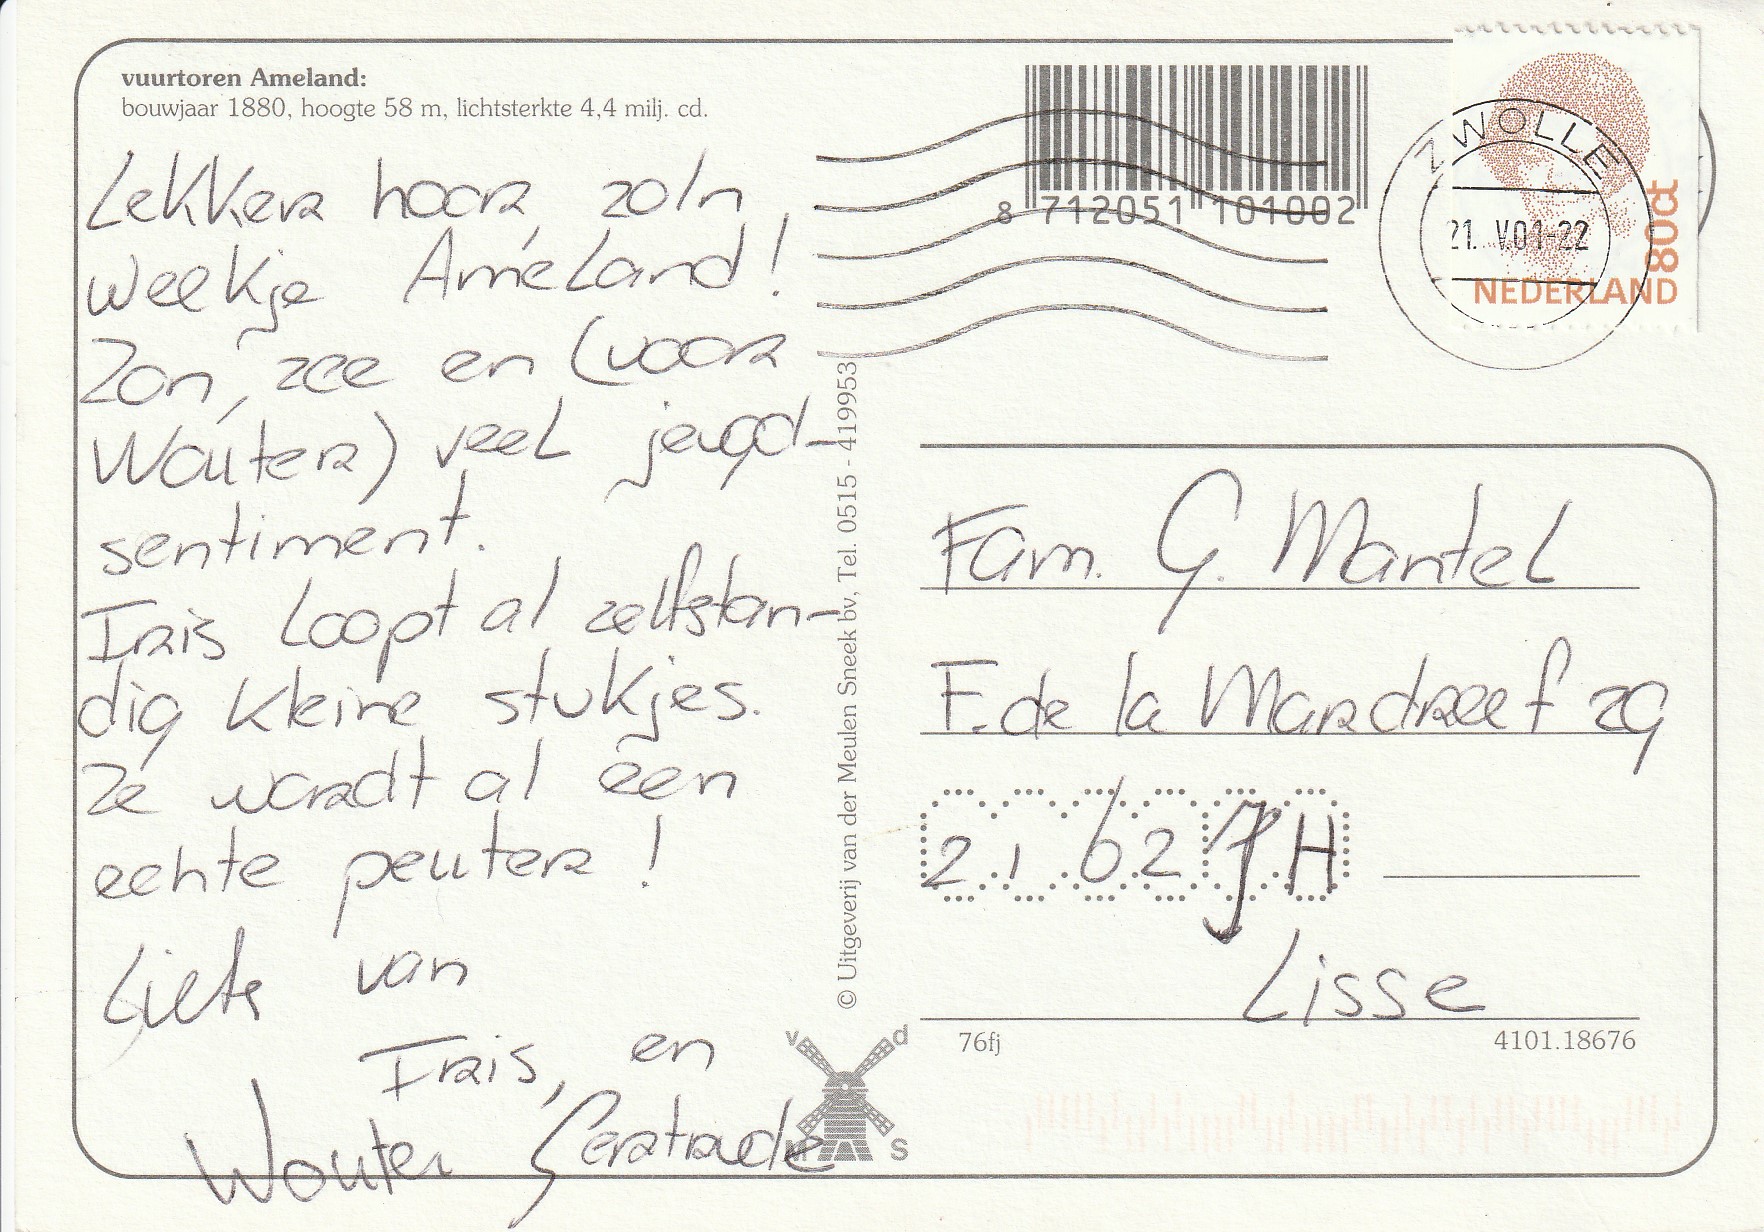 vuurtoren Ameland:
bouwjaar 1880, hoogte 58 m, lichtsterkte 4,4 milj. cd.
Lekker hoor, zo'n
weekje Ameland!
Zon, zee en (voor
Wouter) veel jeugd-
sentiment.
Iris loopt al zelfstan-
dig kleine stukjes.
Ze wordt al een
echte peuter!
Liefs van
Iris, en
Wouter Gertrude
© Uitgeverij van der Meulen Sneek bv, Tel. 0515 - 419953
8 712051 101002
ZWOLLE
21. V.01-22
80ct
NEDERLAND
Fam. G. Mantel
F. de la Mardreef 29
2162 JH
Lisse
76fj
4101.18676
v d
M S